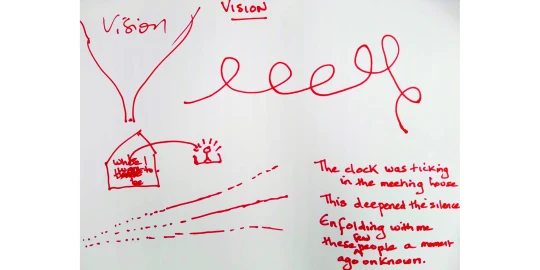 Vision
VISION
where I
to
be
The clock was ticking
in the meeting house
This deepened the silence
Enfolding with me
these few people a moment
ago unknown.